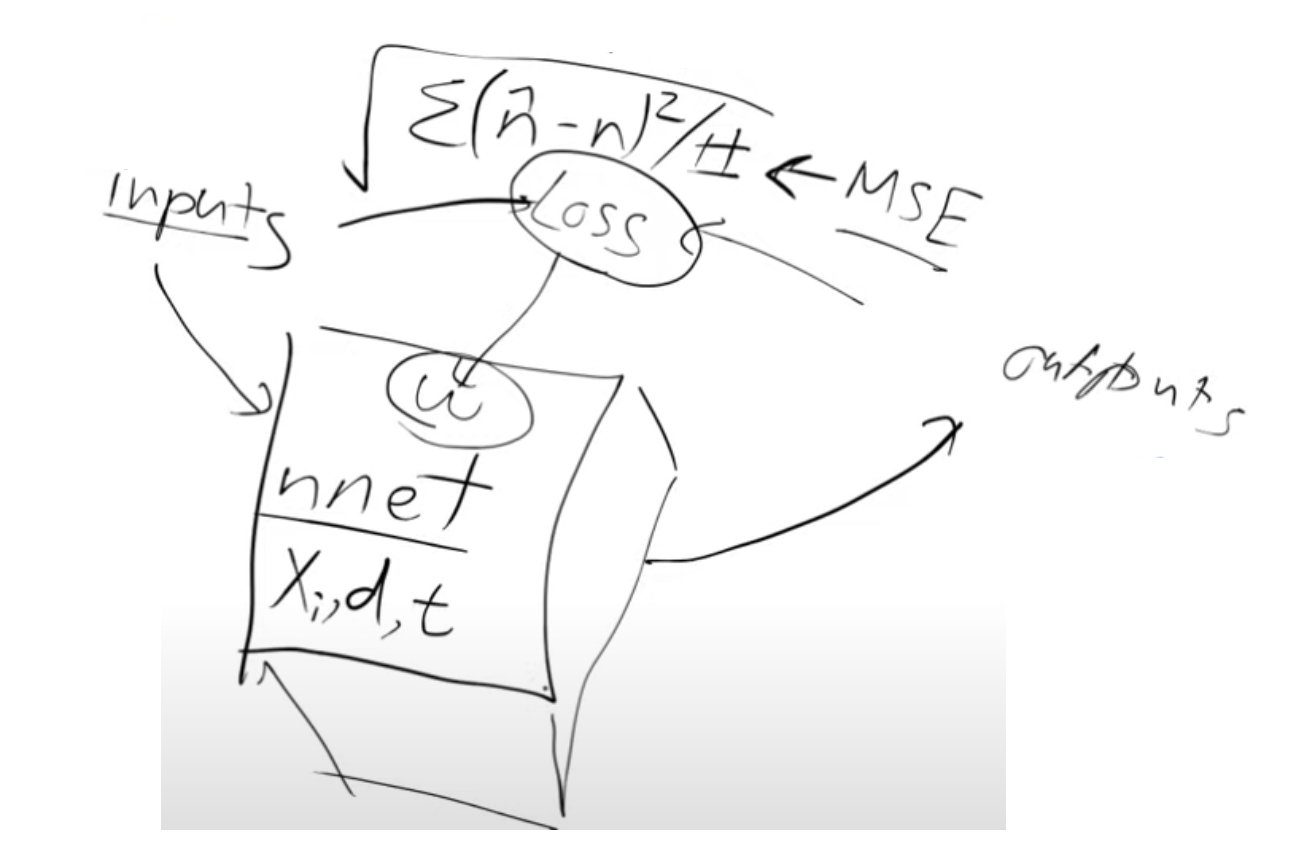 Σ(n̂-n)²/#
← MSE
inputs
Loss
outputs
w
nnet
Xi,d,t